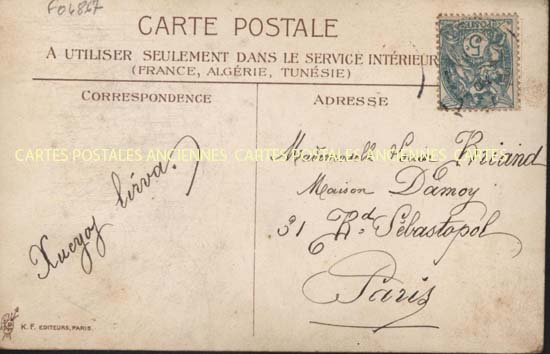 F04867
CARTE POSTALE
A UTILISER SEULEMENT DANS LE SERVICE INTÉRIEUR
(FRANCE, ALGÉRIE, TUNÉSIE)
CORRESPONDENCE
ADRESSE
CARTES POSTALES ANCIENNES CARTES POSTALES ANCIENNES CARTES
Mademoiselle Briand
Maison Damoy
31 Bd Sébastopol
Paris
K. F. EDITEURS, PARIS.